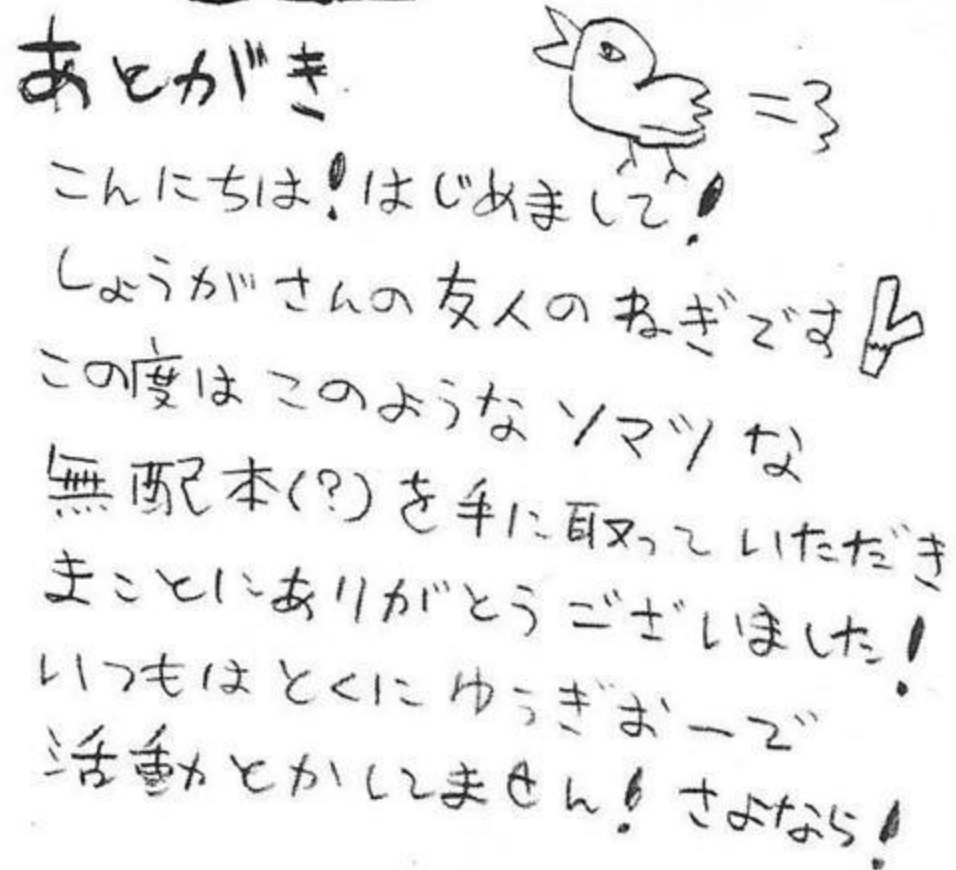 あとがき
こんにちは!はじめまして!
しょうがさんの友人のねぎです
この度はこのようなソマツな
無配本(?)を手に取っていただき
まことにありがとうございました!
いつもはとくにゆうぎおーで
活動とかしてません!さよなら!